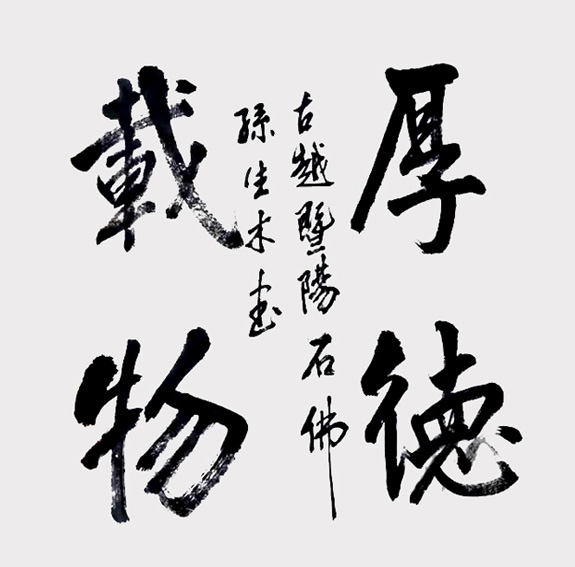 厚德
載物
古越暨陽石佛
孫生木書